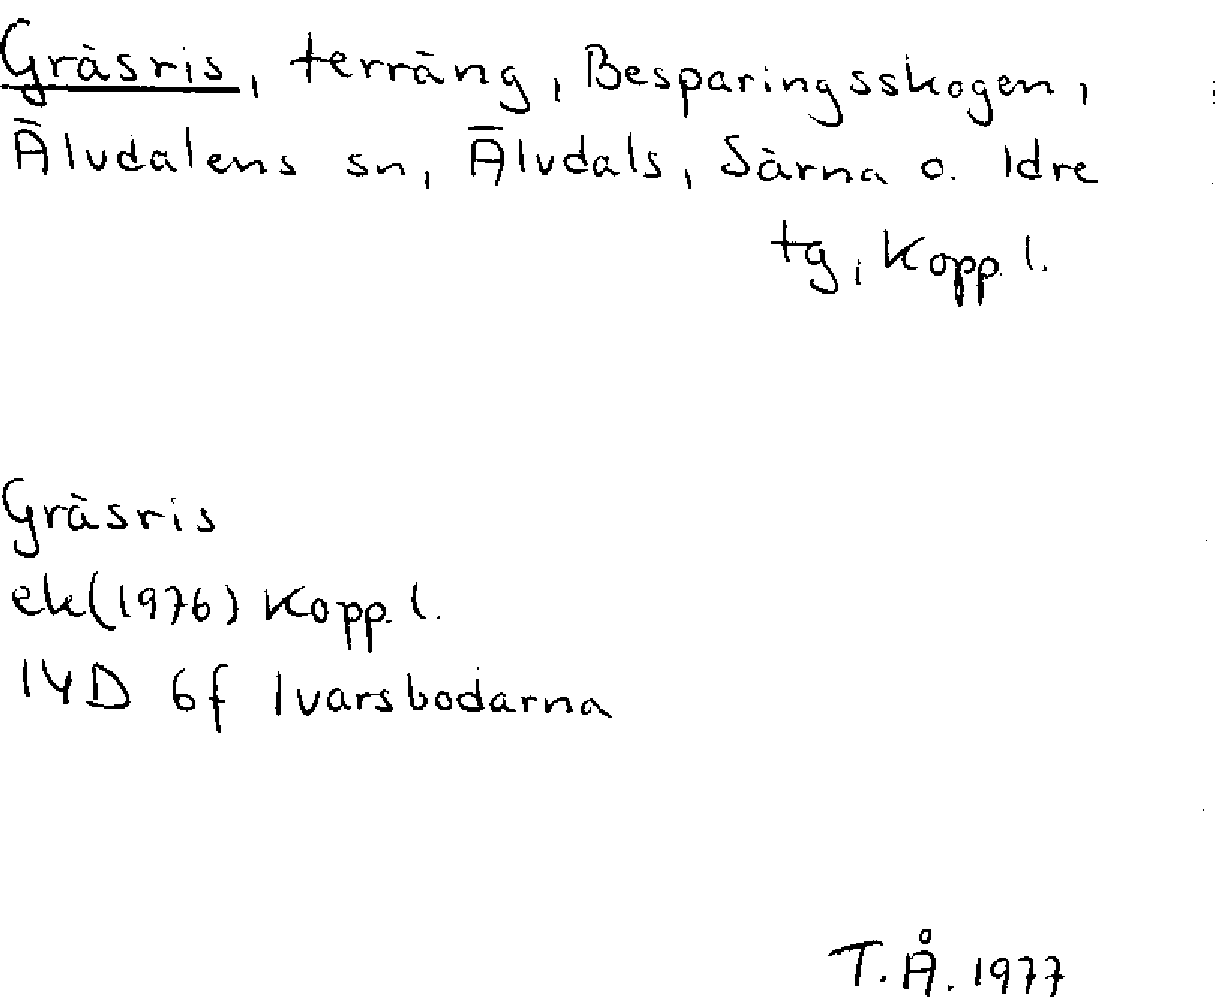 Gräsris, terräng, Besparingsskogen,
Älvdalens sn, Älvdals, Särna o. Idre
tg, Kopp. l.
Gräsris
ek(1976) Kopp. l.
14D 6f Ivarsbodarna
T.Å. 1977